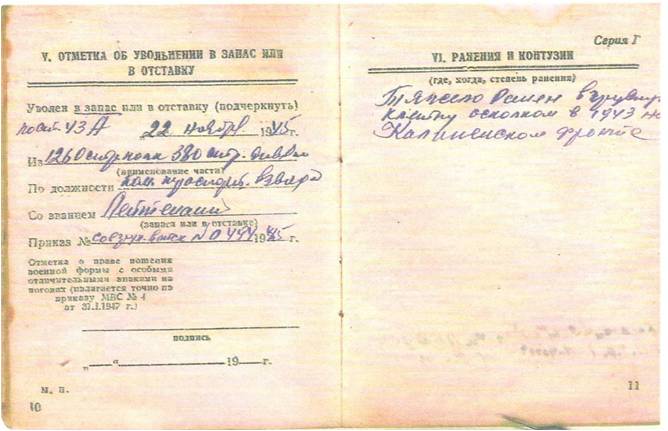 V. ОТМЕТКА ОБ УВОЛЬНЕНИИ В ЗАПАС ИЛИ
В ОТСТАВКУ
Уволен в запас или в отставку (подчеркнуть)
по ст. 43 А 22 ноября 1945 г.
Из 1260 стр. полка 380 стр. дивизии
(наименование части)
По должности ком. взвода
Со званием Лейтенант
(запаса или в отставке)
Приказ № войск № 0444 1945 г.
Отметка о праве ношения
военной формы с особыми
отличительными знаками на
погонах (излагается точно по
приказу МВС № 4
от 37.I.1947 г.)
подпись
„—“ 19— г.
м. п.
10
Серия Г
VI. РАНЕНИЯ И КОНТУЗИИ
(где, когда, степень ранения)
Тяжело ранен в грудную
клетку осколком в 1943 на
Калининском фронте
11